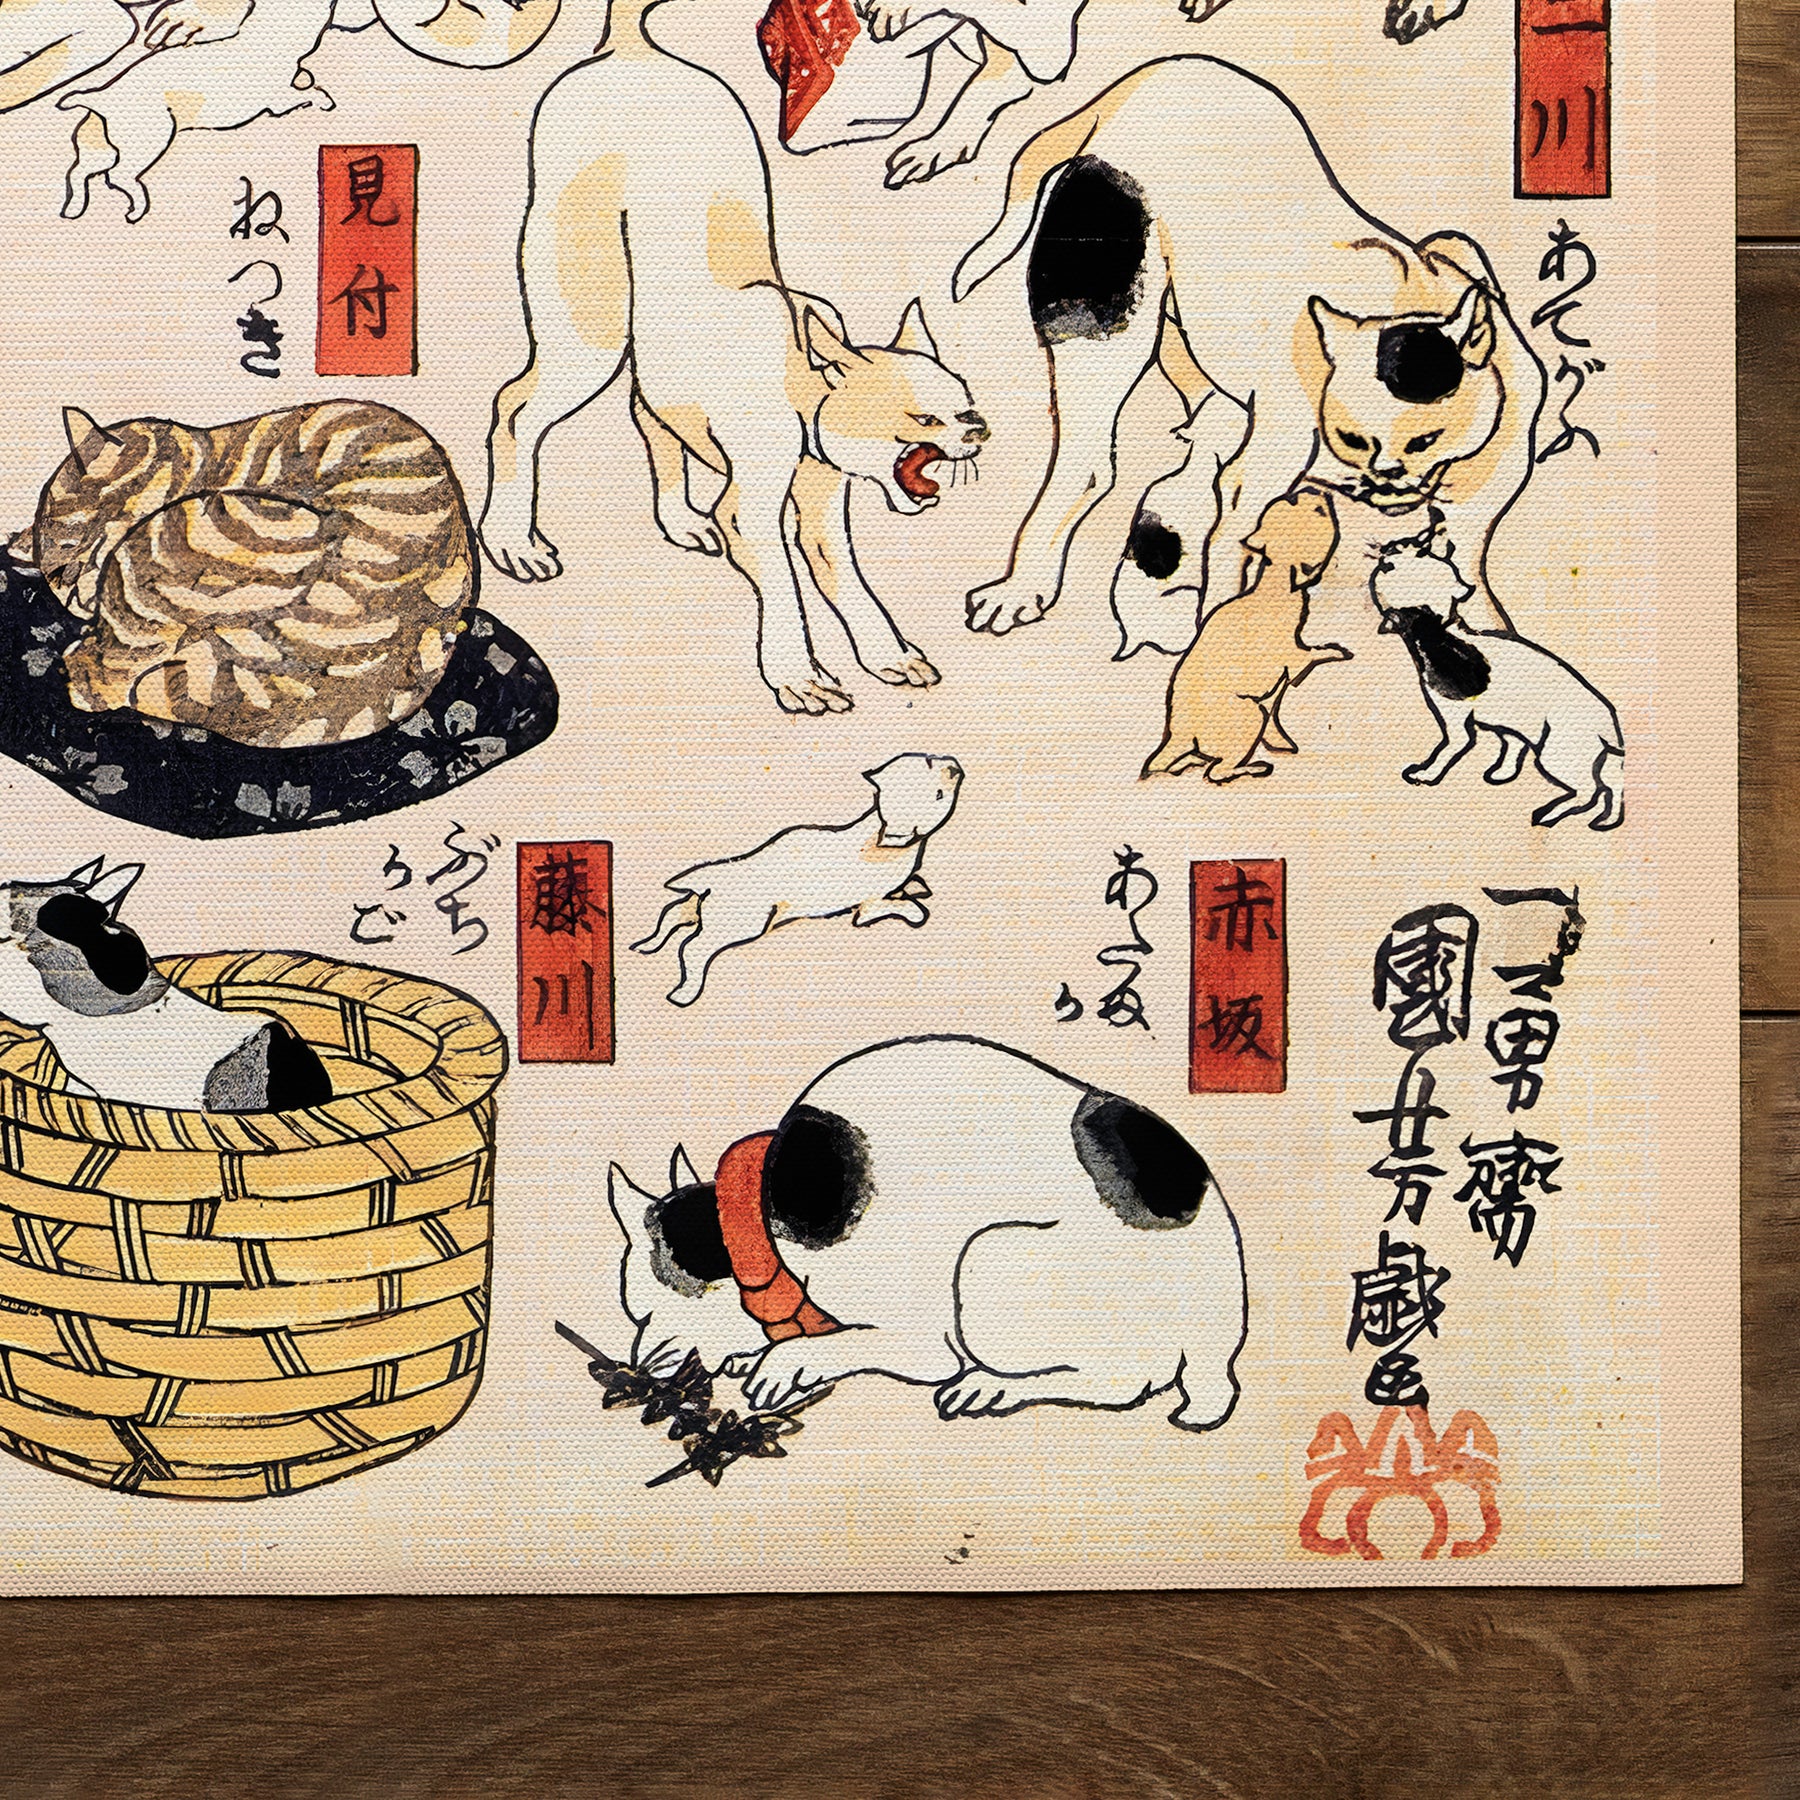 二川
あてがふ
見付
ねつき
赤坂
あたま
か
藤川
ぶち
かご
一勇齋
國芳戯画